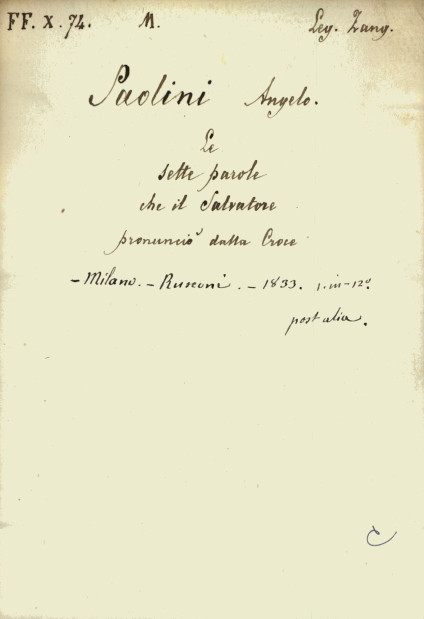 FF. X. 74. M. Leg. Zang.
Paolini Angelo.
Le
sette parole
che il Salvatore
pronunciò dalla Croce
- Milano. - Rusconi. - 1833. 1. in-12º.
post alia.
C